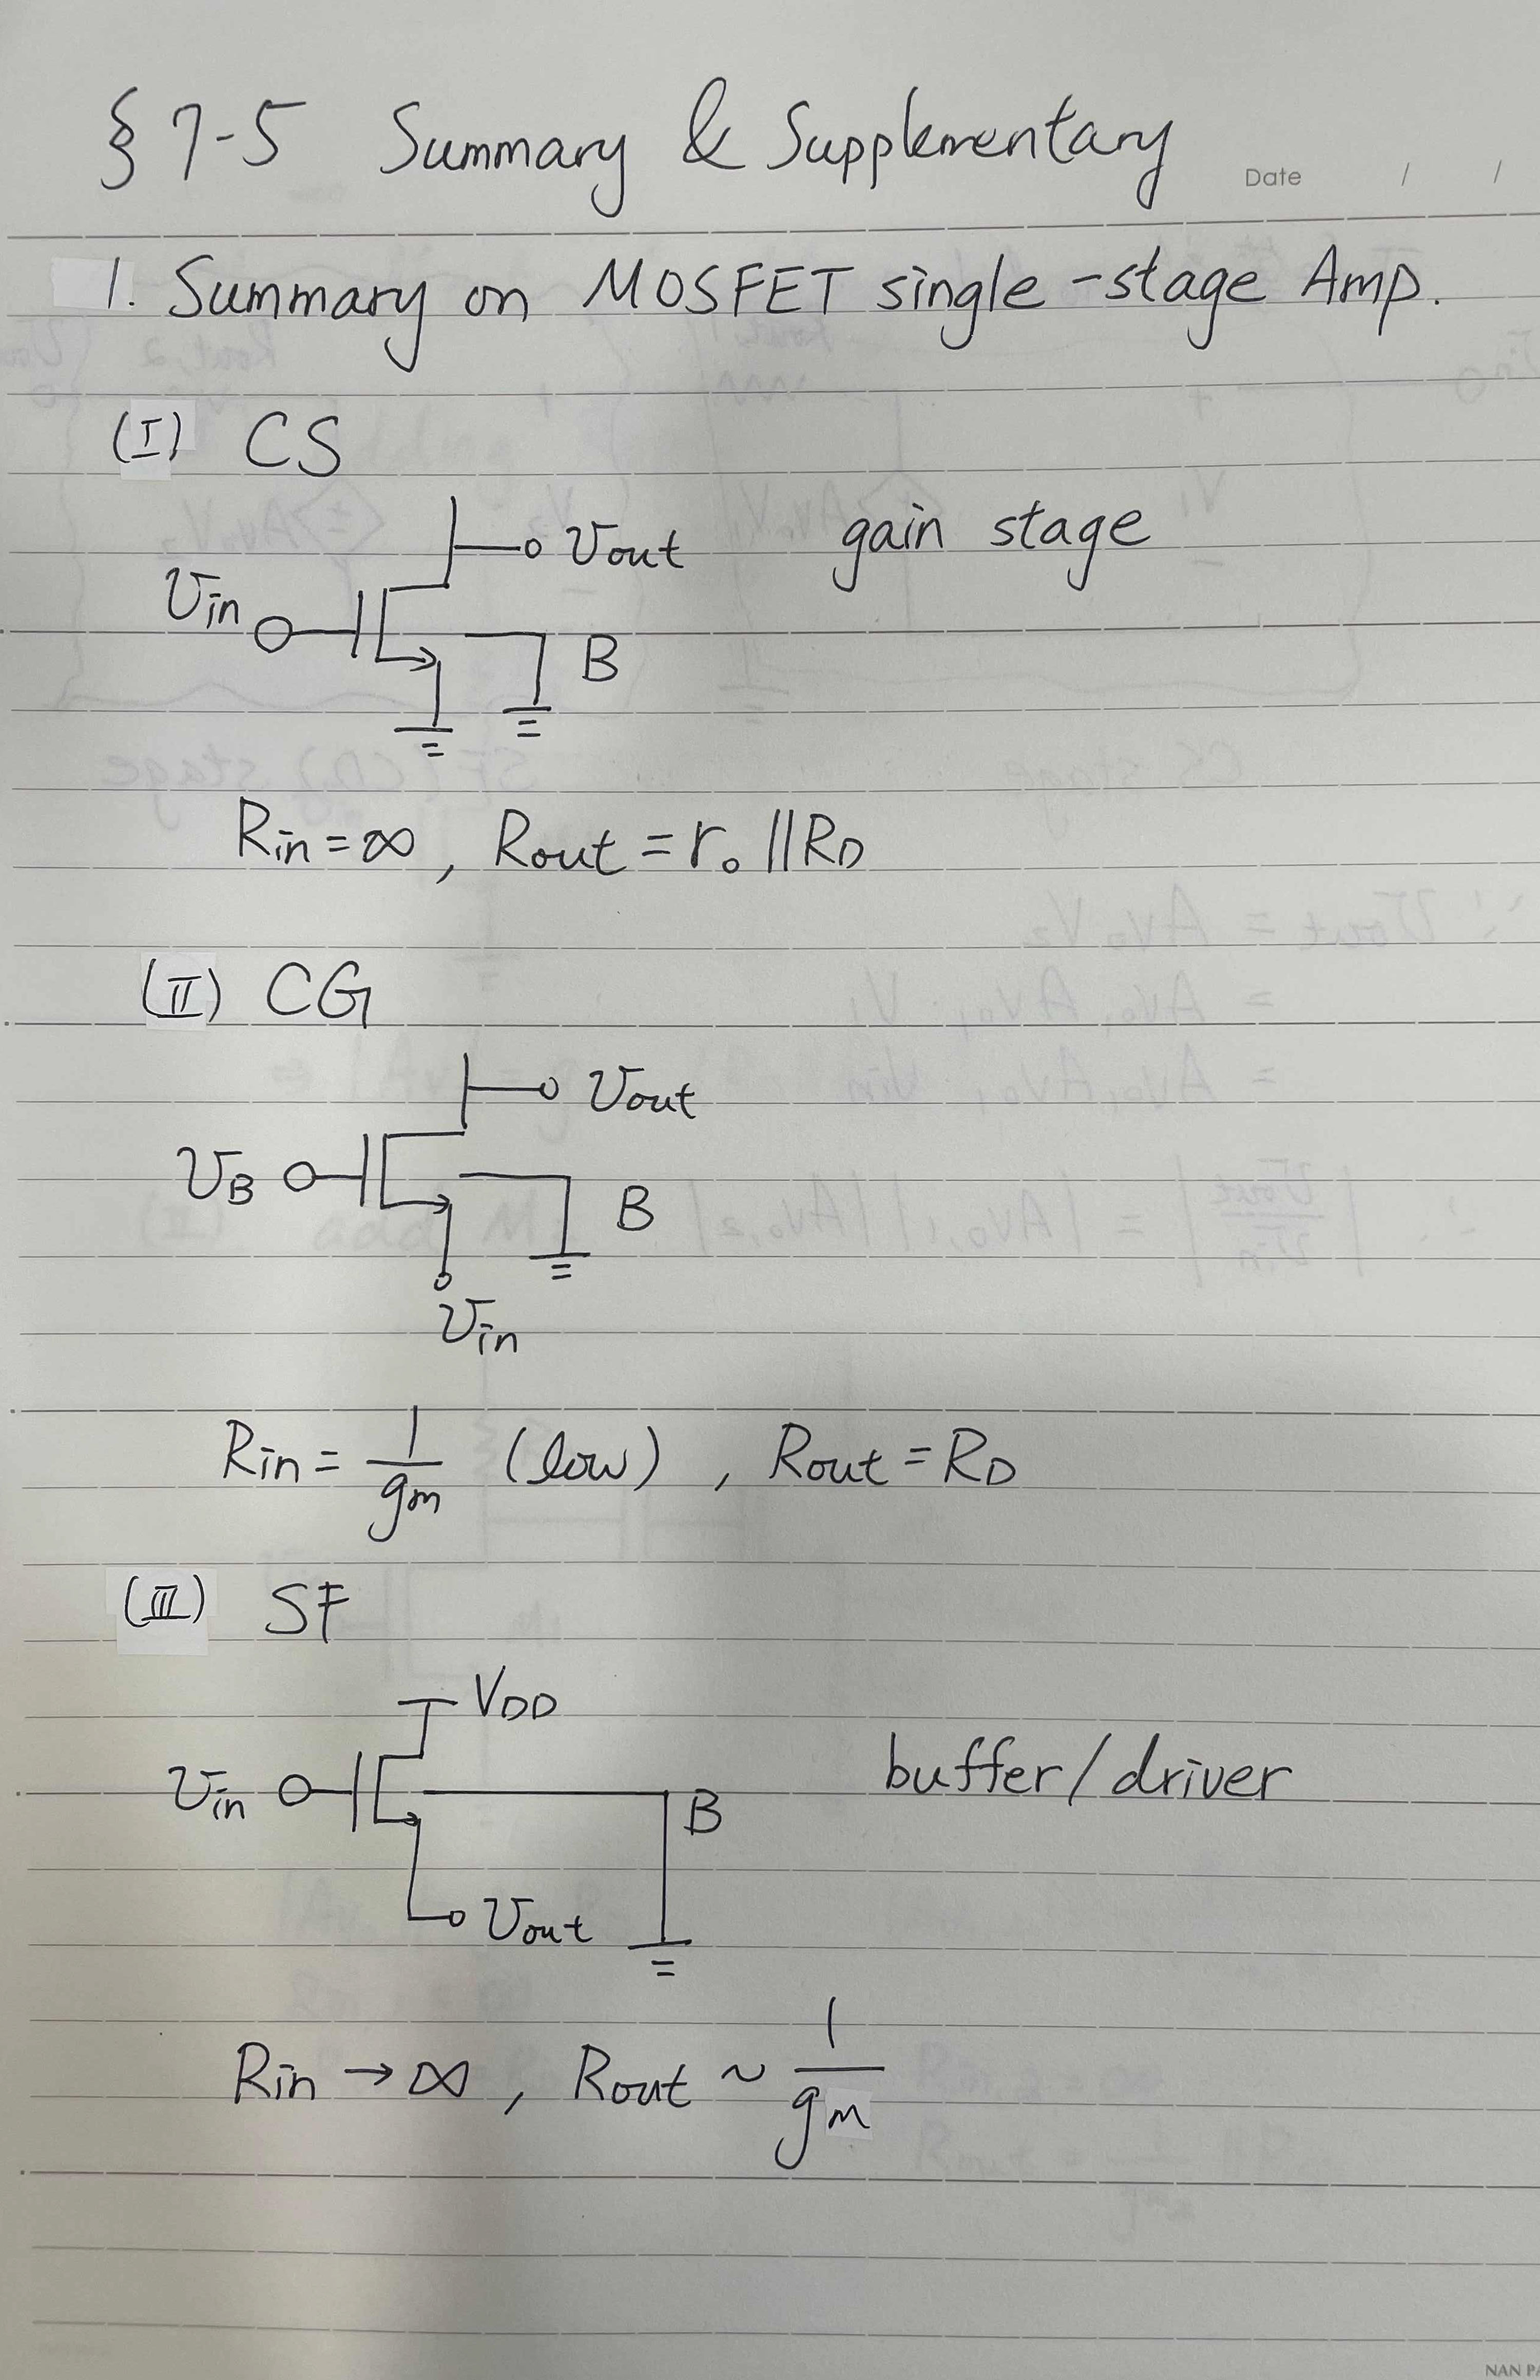 § 7-5 Summary & Supplementary
Date / /
1. Summary on MOSFET single-stage Amp.
(I) CS
Vout gain stage
Vin
B
Rin = ∞ , Rout = r₀ || RD
(II) CG
Vout
VB
B
Vin
Rin = 1/gm (low) , Rout = RD
(III) SF
VDD
Vin B buffer/driver
Vout
Rin → ∞ , Rout ~ 1/gm